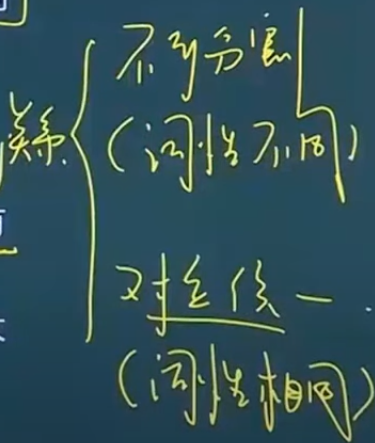 关系
不可分割
(词性不同)
对立统一
(词性相同)